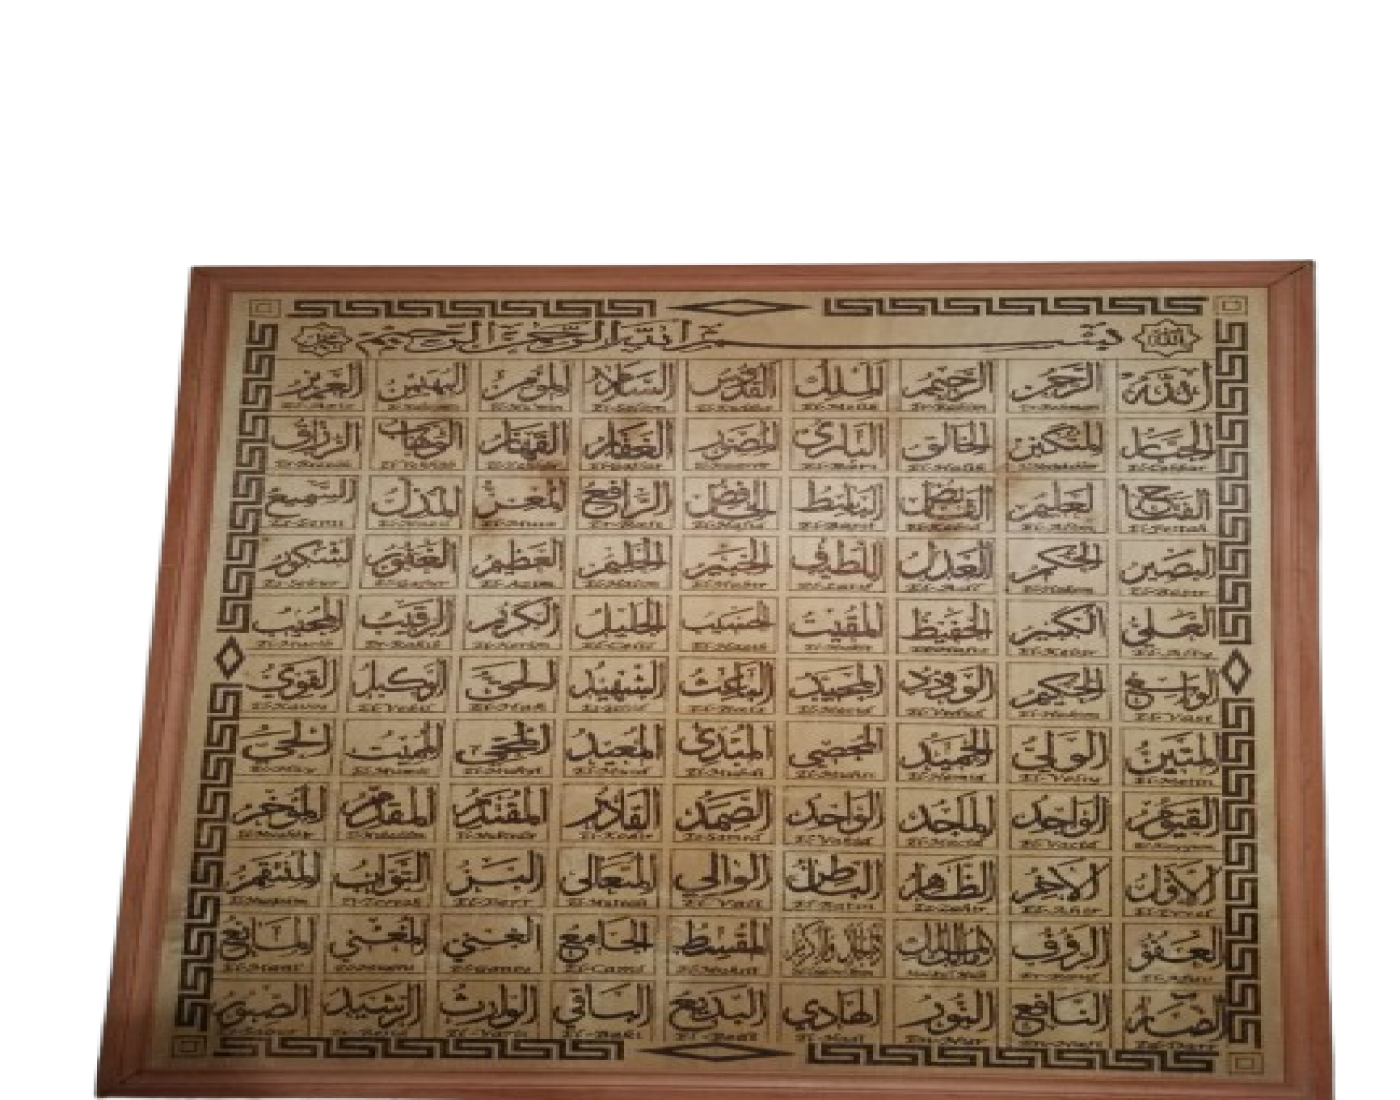 الله بسم الله الرحمن الرحيم محمد
الله الرحمن الرحيم الملك القدوس السلام المؤمن المهيمن العزيز
Er-Rahman Er-Rahim El-Melik El-Kuddüs Es-Selam El-Mü'min El-Aziz
الجبار المتكبر الخالق البارئ المصور الغفار القهار الوهاب الرزاق
El-Cebbar El-Halik El-Bari El-Gaffar El-Kahhar El-Vehhab Er-Rezzak
الفتاح العليم القابض الباسط الخافض الرافع المعز المذل السميع
El-Fettah El-Alim El-Basit El-Hafid Er-Rafi El-Muiz El-Muzil Es-Semi
البصير الحكم العدل اللطيف الخبير الحليم العظيم الغفور الشكور
El-Basir El-Hakem El-Adl El-Latif El-Habir El-Halim El-Azim El-Gafur Es-Sekur
العلي الكبير الحفيظ المقيت الحسيب الجليل الكريم الرقيب المجيب
El-Aliy El-Kebir El-Hafiz El-Mukit El-Hasib El-Celil El-Kerim Er-Rakib El-Mucib
الواسع الحكيم الودود المجيد الباعث الشهيد الحق الوكيل القوي
El-Vasi El-Hakim El-Vedud El-Mecid El-Bais El-Hak El-Vekil El-Kaviy
المتين الولي الحميد المحصي المبدئ المعيد المحيي المميت الحي
El-Metin El-Veliy El-Hamid El-Muhsi El-Mubdi El-Muid El-Muhyi El-Mumit El-Hay
القيوم الواجد الماجد الواحد الصمد القادر المقتدر المقدم المؤخر
El-Kayyum El-Vacid El-Macid El-Vahid Es-Samed El-Kadir El-Muktedir El-Mukaddim El-Muahhir
الأول الآخر الظاهر الباطن الوالي المتعالي البر التواب المنتقم
El-Evvel El-Ahir Ez-Zahir El-Batin El-Vali El-Muteali El-Berr Et-Tevvab El-Muntekim
العفو الرؤف مالك الملك المقسط الجامع الغني المغني المانع
El-Afuv Er-Rauf El-Muksit El-Cami El-Ganiy El-Mugni El-Mani
الضار النافع النور الهادي البديع الباقي الوارث الرشيد الصبور
Ed-Darr En-Nafi En-Nur El-Hadi El-Bedi El-Baki El-Varis Er-Resid